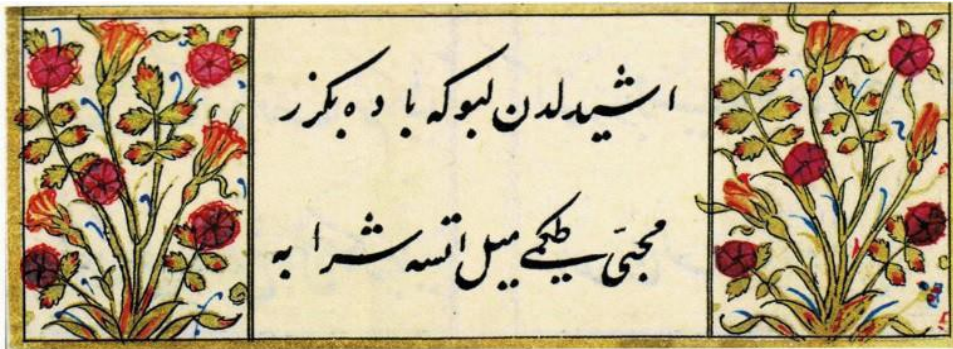 اشیدلدن لبوکه باده بکزر
محبّی طکمی میل اتسه شرابه